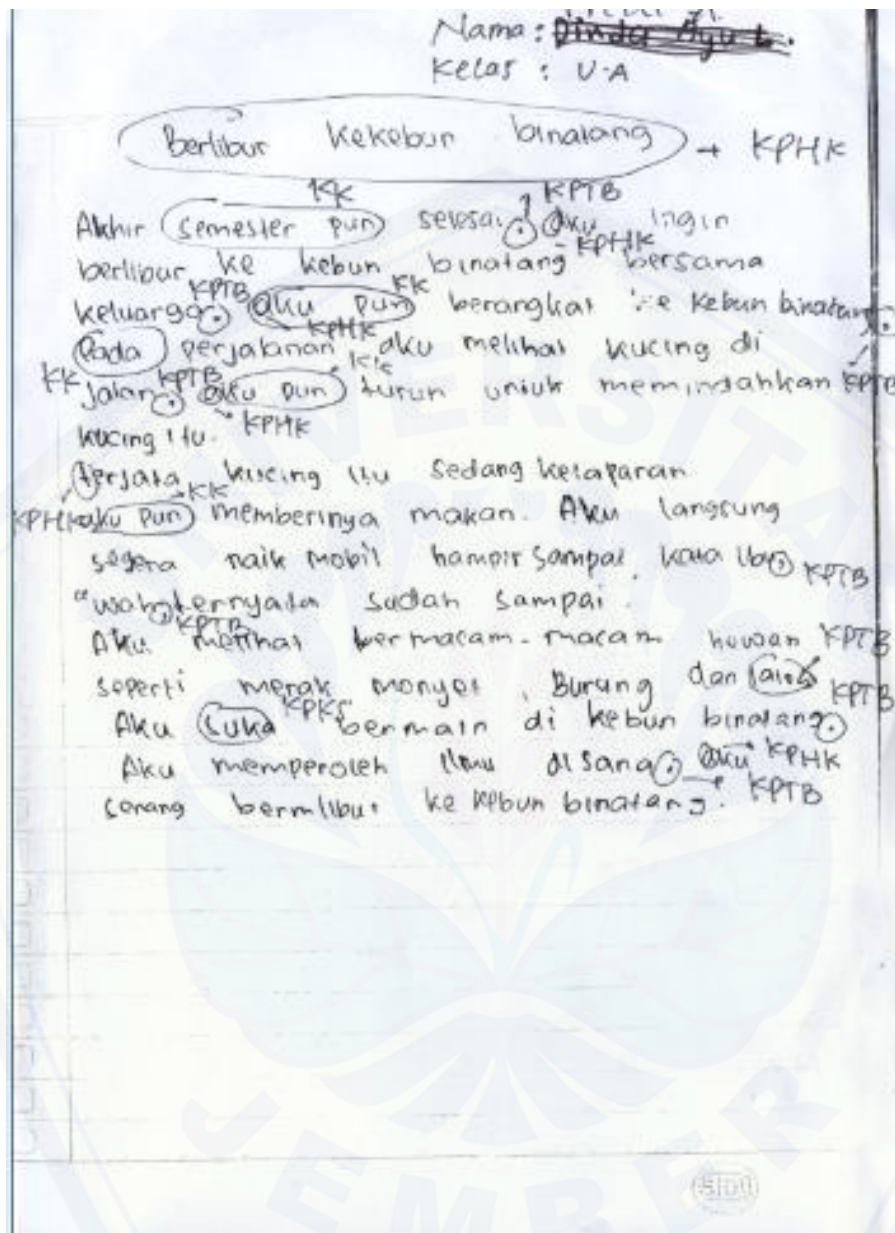 Nama: Dinda Ayu L.
Kelas : V.A
Berlibur kekebun binatang → KPHK
KK KPTB
Akhir semester pun selesai. aku ingin
KPHK
berlibur ke kebun binatang bersama
KPTB KK
keluarga. aku pun berangkat ke kebun binatang.
KPHK
Pada perjalanan aku melihat kucing di
KK KPTB KK
jalan. aku pun turun untuk memindahkan KPTB
kucing itu. KPHK
ternyata kucing itu sedang kelaparan
KK
KPHK aku pun memberinya makan. Aku langsung
segera naik mobil hampir sampai kata Ibu. KPTB
"wah, ternyata sudah sampai.
KPTB
Aku melihat bermacam-macam hewan KPTB
seperti merak monyet, Burung dan lain KPTB
KPKS
Aku suka bermain di kebun binatang.
Aku memperoleh ilmu disana. aku KPHK
senang bermlibur ke kebun binatang. KPTB
UNIVERSITA
JEMBER